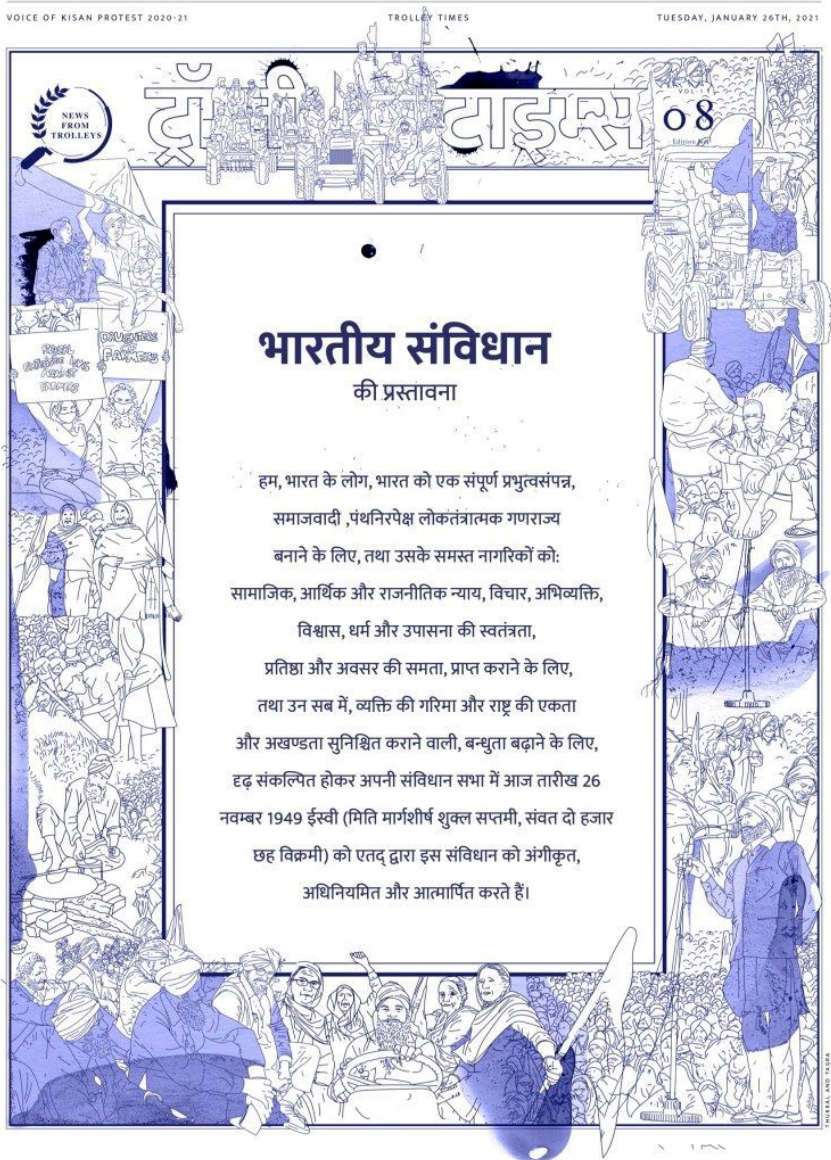 VOICE OF KISAN PROTEST 2020-21
TROLLEY TIMES
TUESDAY, JANUARY 26TH, 2021
NEWS
FROM
TROLLEYS
ट्रॉली टाइम्स
08
भारतीय संविधान
की प्रस्तावना
हम, भारत के लोग, भारत को एक संपूर्ण प्रभुत्वसंपन्न,
समाजवादी ,पंथनिरपेक्ष लोकतंत्रात्मक गणराज्य
बनाने के लिए, तथा उसके समस्त नागरिकों को:
सामाजिक, आर्थिक और राजनीतिक न्याय, विचार, अभिव्यक्ति,
विश्वास, धर्म और उपासना की स्वतंत्रता,
प्रतिष्ठा और अवसर की समता, प्राप्त कराने के लिए,
तथा उन सब में, व्यक्ति की गरिमा और राष्ट्र की एकता
और अखण्डता सुनिश्चित कराने वाली, बन्धुता बढ़ाने के लिए,
दृढ़ संकल्पित होकर अपनी संविधान सभा में आज तारीख 26
नवम्बर 1949 ईस्वी (मिति मार्गशीर्ष शुक्ल सप्तमी, संवत दो हजार
छह विक्रमी) को एतद् द्वारा इस संविधान को अंगीकृत,
अधिनियमित और आत्मार्पित करते हैं।
DAUGHTERS
OF
FARMERS
AGAINST
FARMERS
THUKRAL AND TAGRA